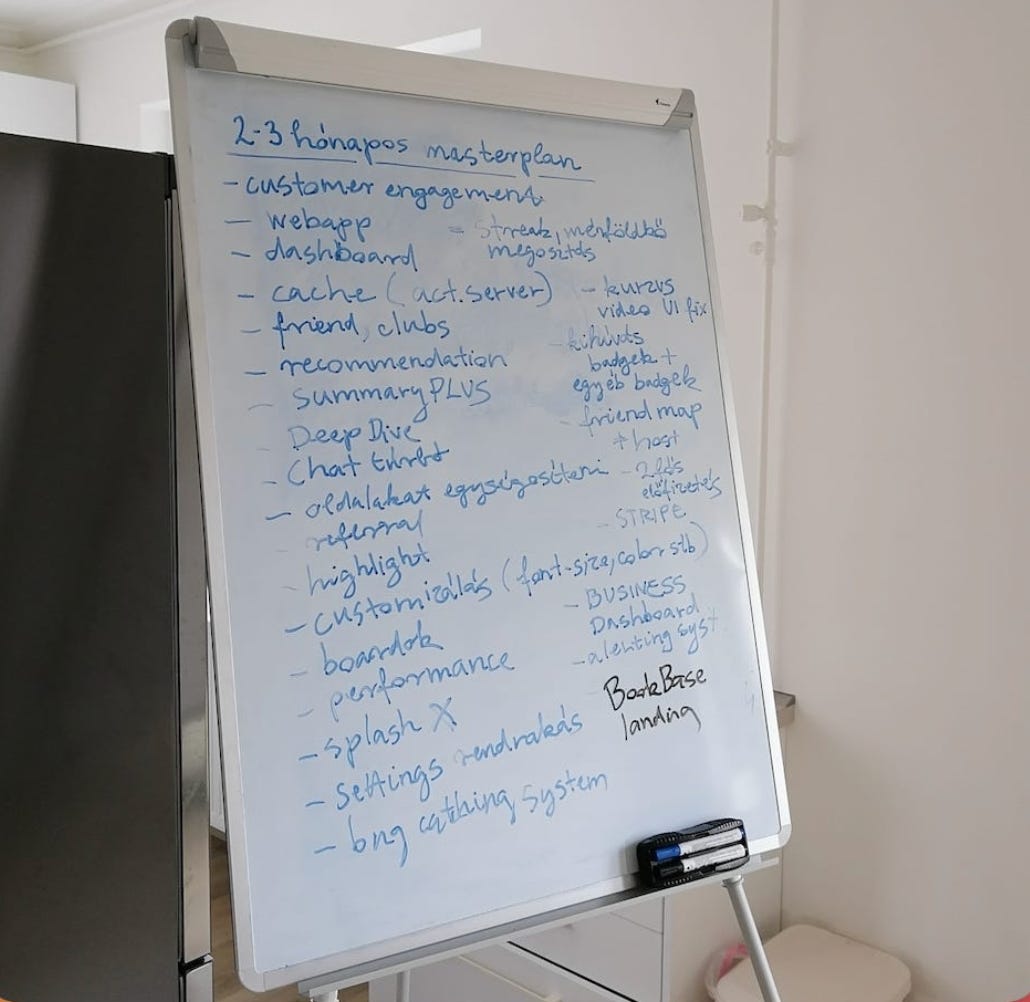 2-3 hónapos masterplan
- customer engagement
- webapp
- dashboard
- cache (act.server)
- friend, clubs
- recommendation
- summaryPLUS
- Deep Dive
- Chat
- oldalakat egységesíteni
- referral
- highlight
- customizálás (font-size, color stb)
- boardok
- performance
- splash X
- settings rendrakás
- bug system
= streak, mérföldkő
megosztás
- kurzus
video UI fix
- kihívás
badgek +
egyéb badgek
- friend map
+ host
- 2 fős
előfizetés
- STRIPE
- BUSINESS
Dashboard
- alerting syst
BookBase
landing